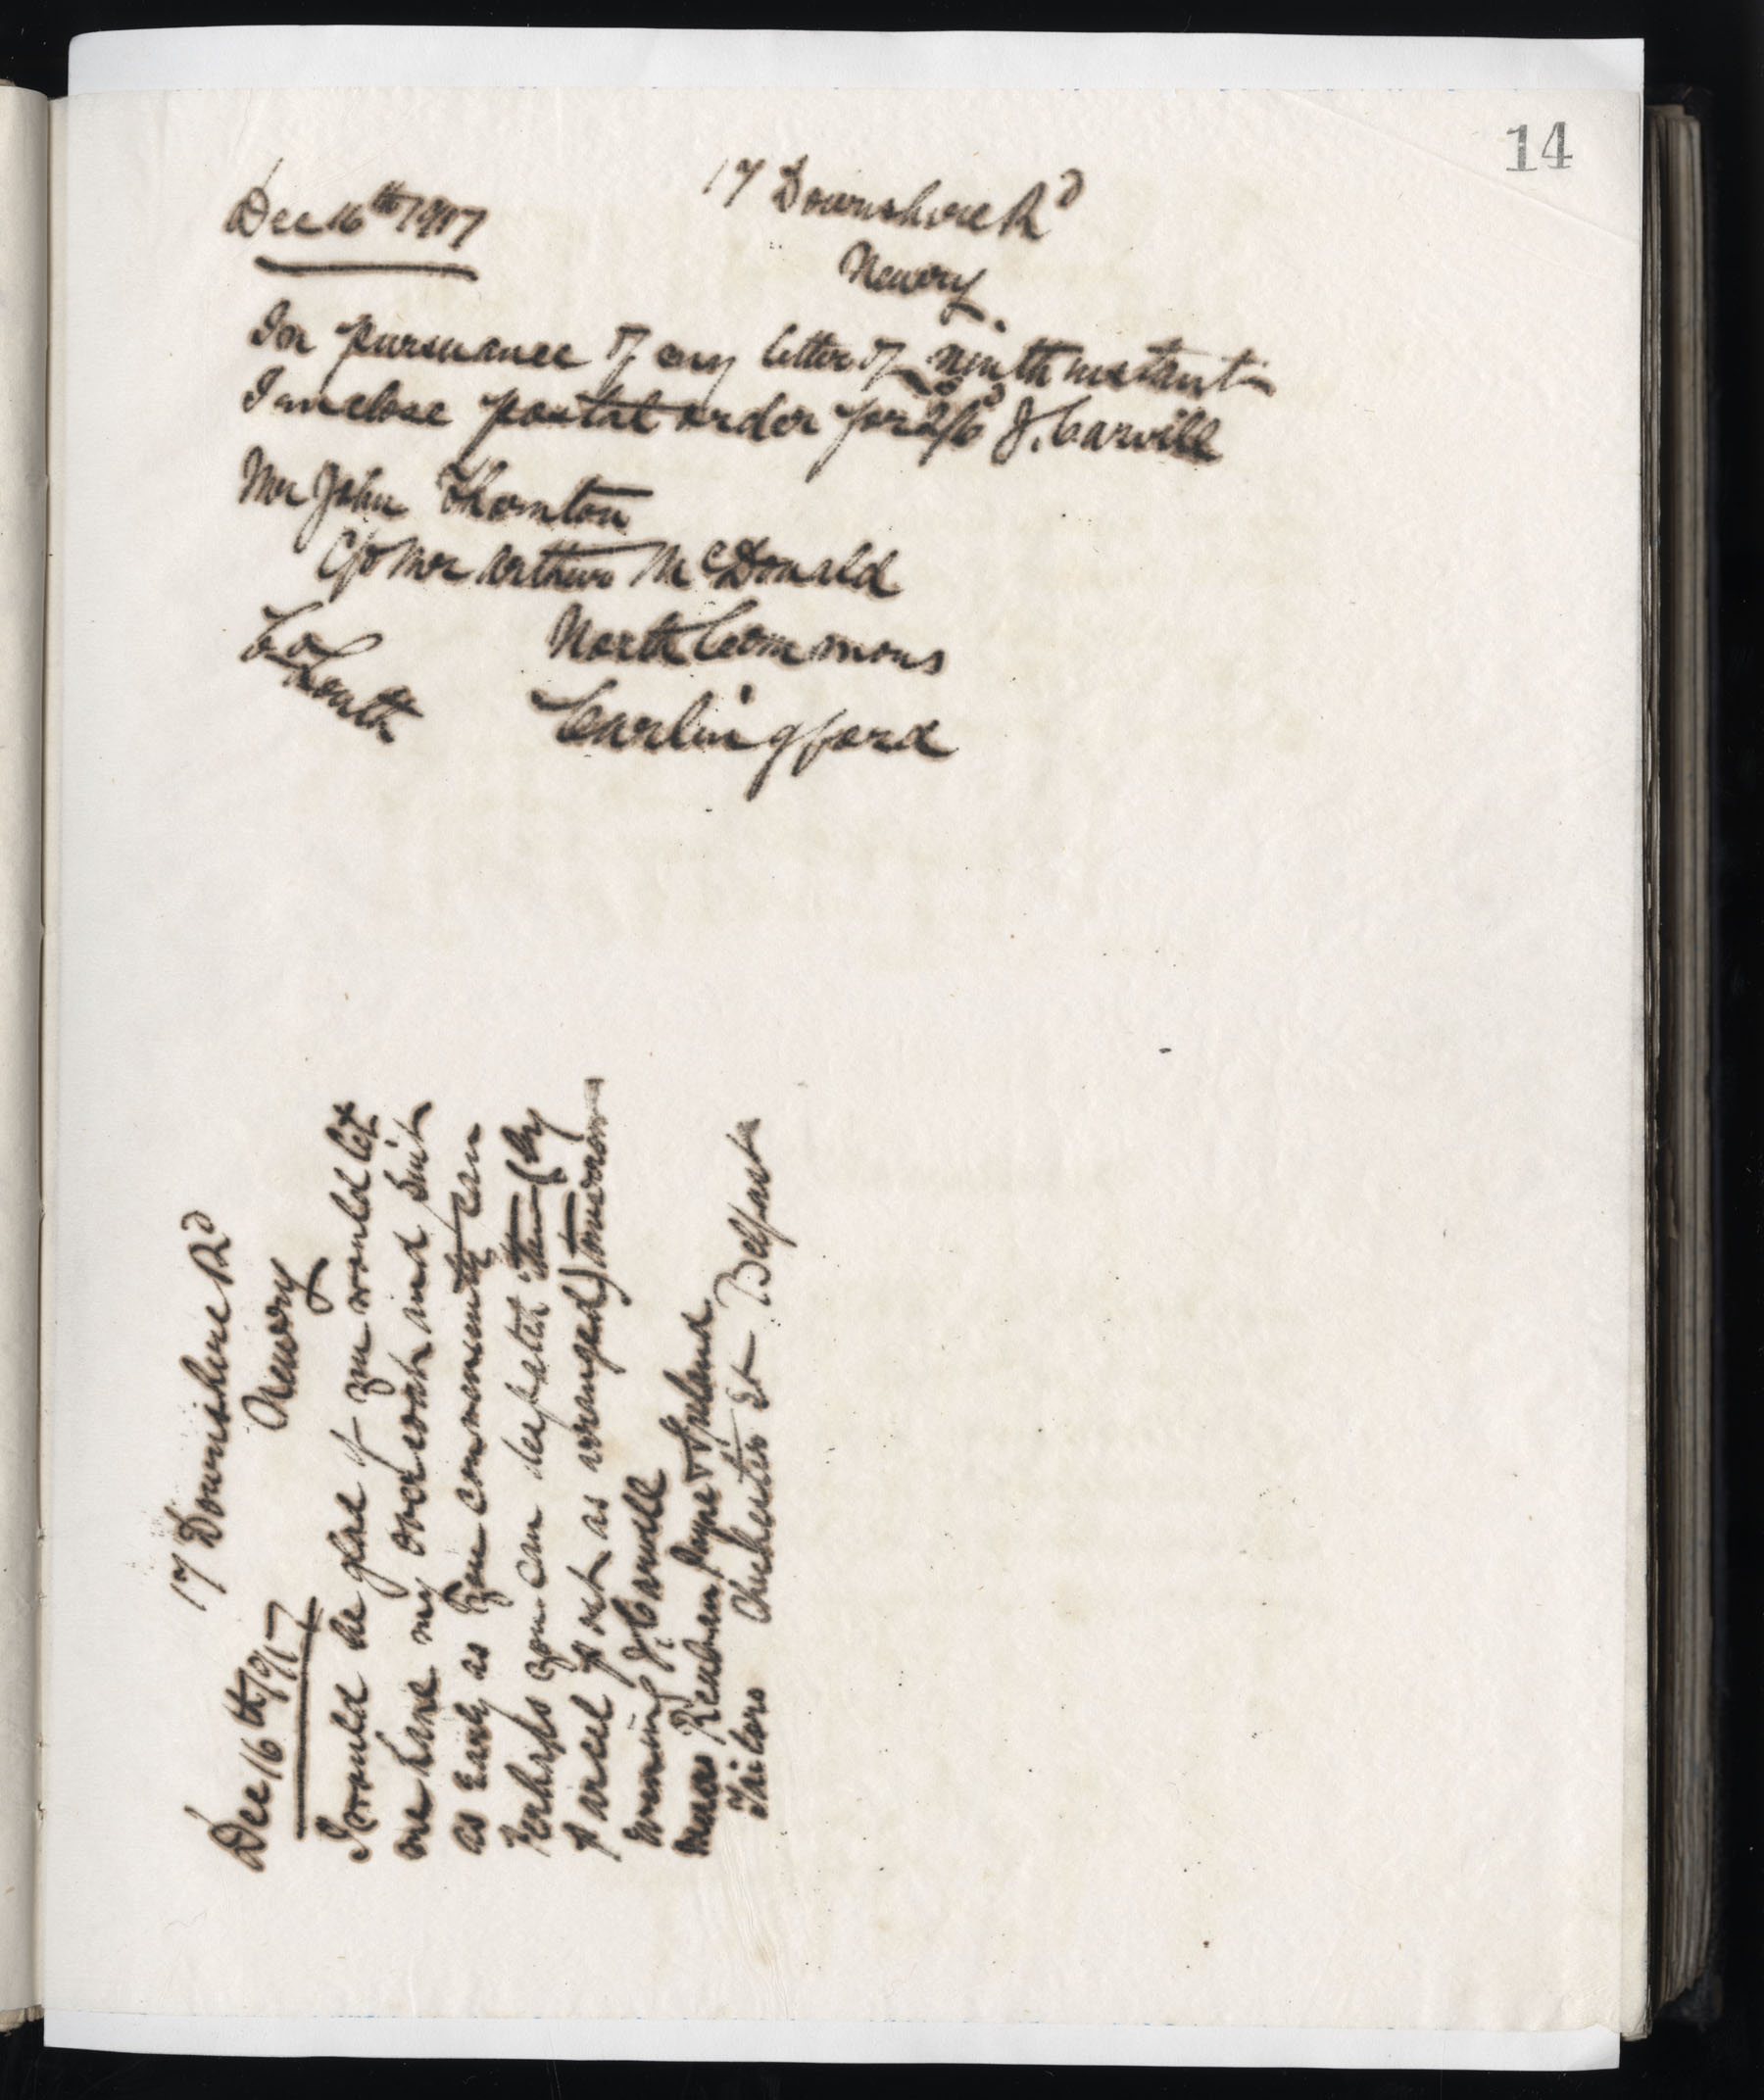 14
Dec 16th 1917
17 Downshire Rd
Newry
In pursuance of my letter of ninth instant
I inclose postal order for 2/6 J. Carvill
Mr John Thornton
C/o Mr Arthur McDonald
North Commons
Carlingford
Co Louth
Dec 16th 1917
17 Downshire Rd
Newry
I would be glad if you would let
me have my overcoat and suit
as early as you conveniently can
Perhaps you can despatch them (by
parcel post as arranged) tomorrow
evening J. Carvill
Messrs Reuben Payne & Ireland
Tailors Chichester St Belfast